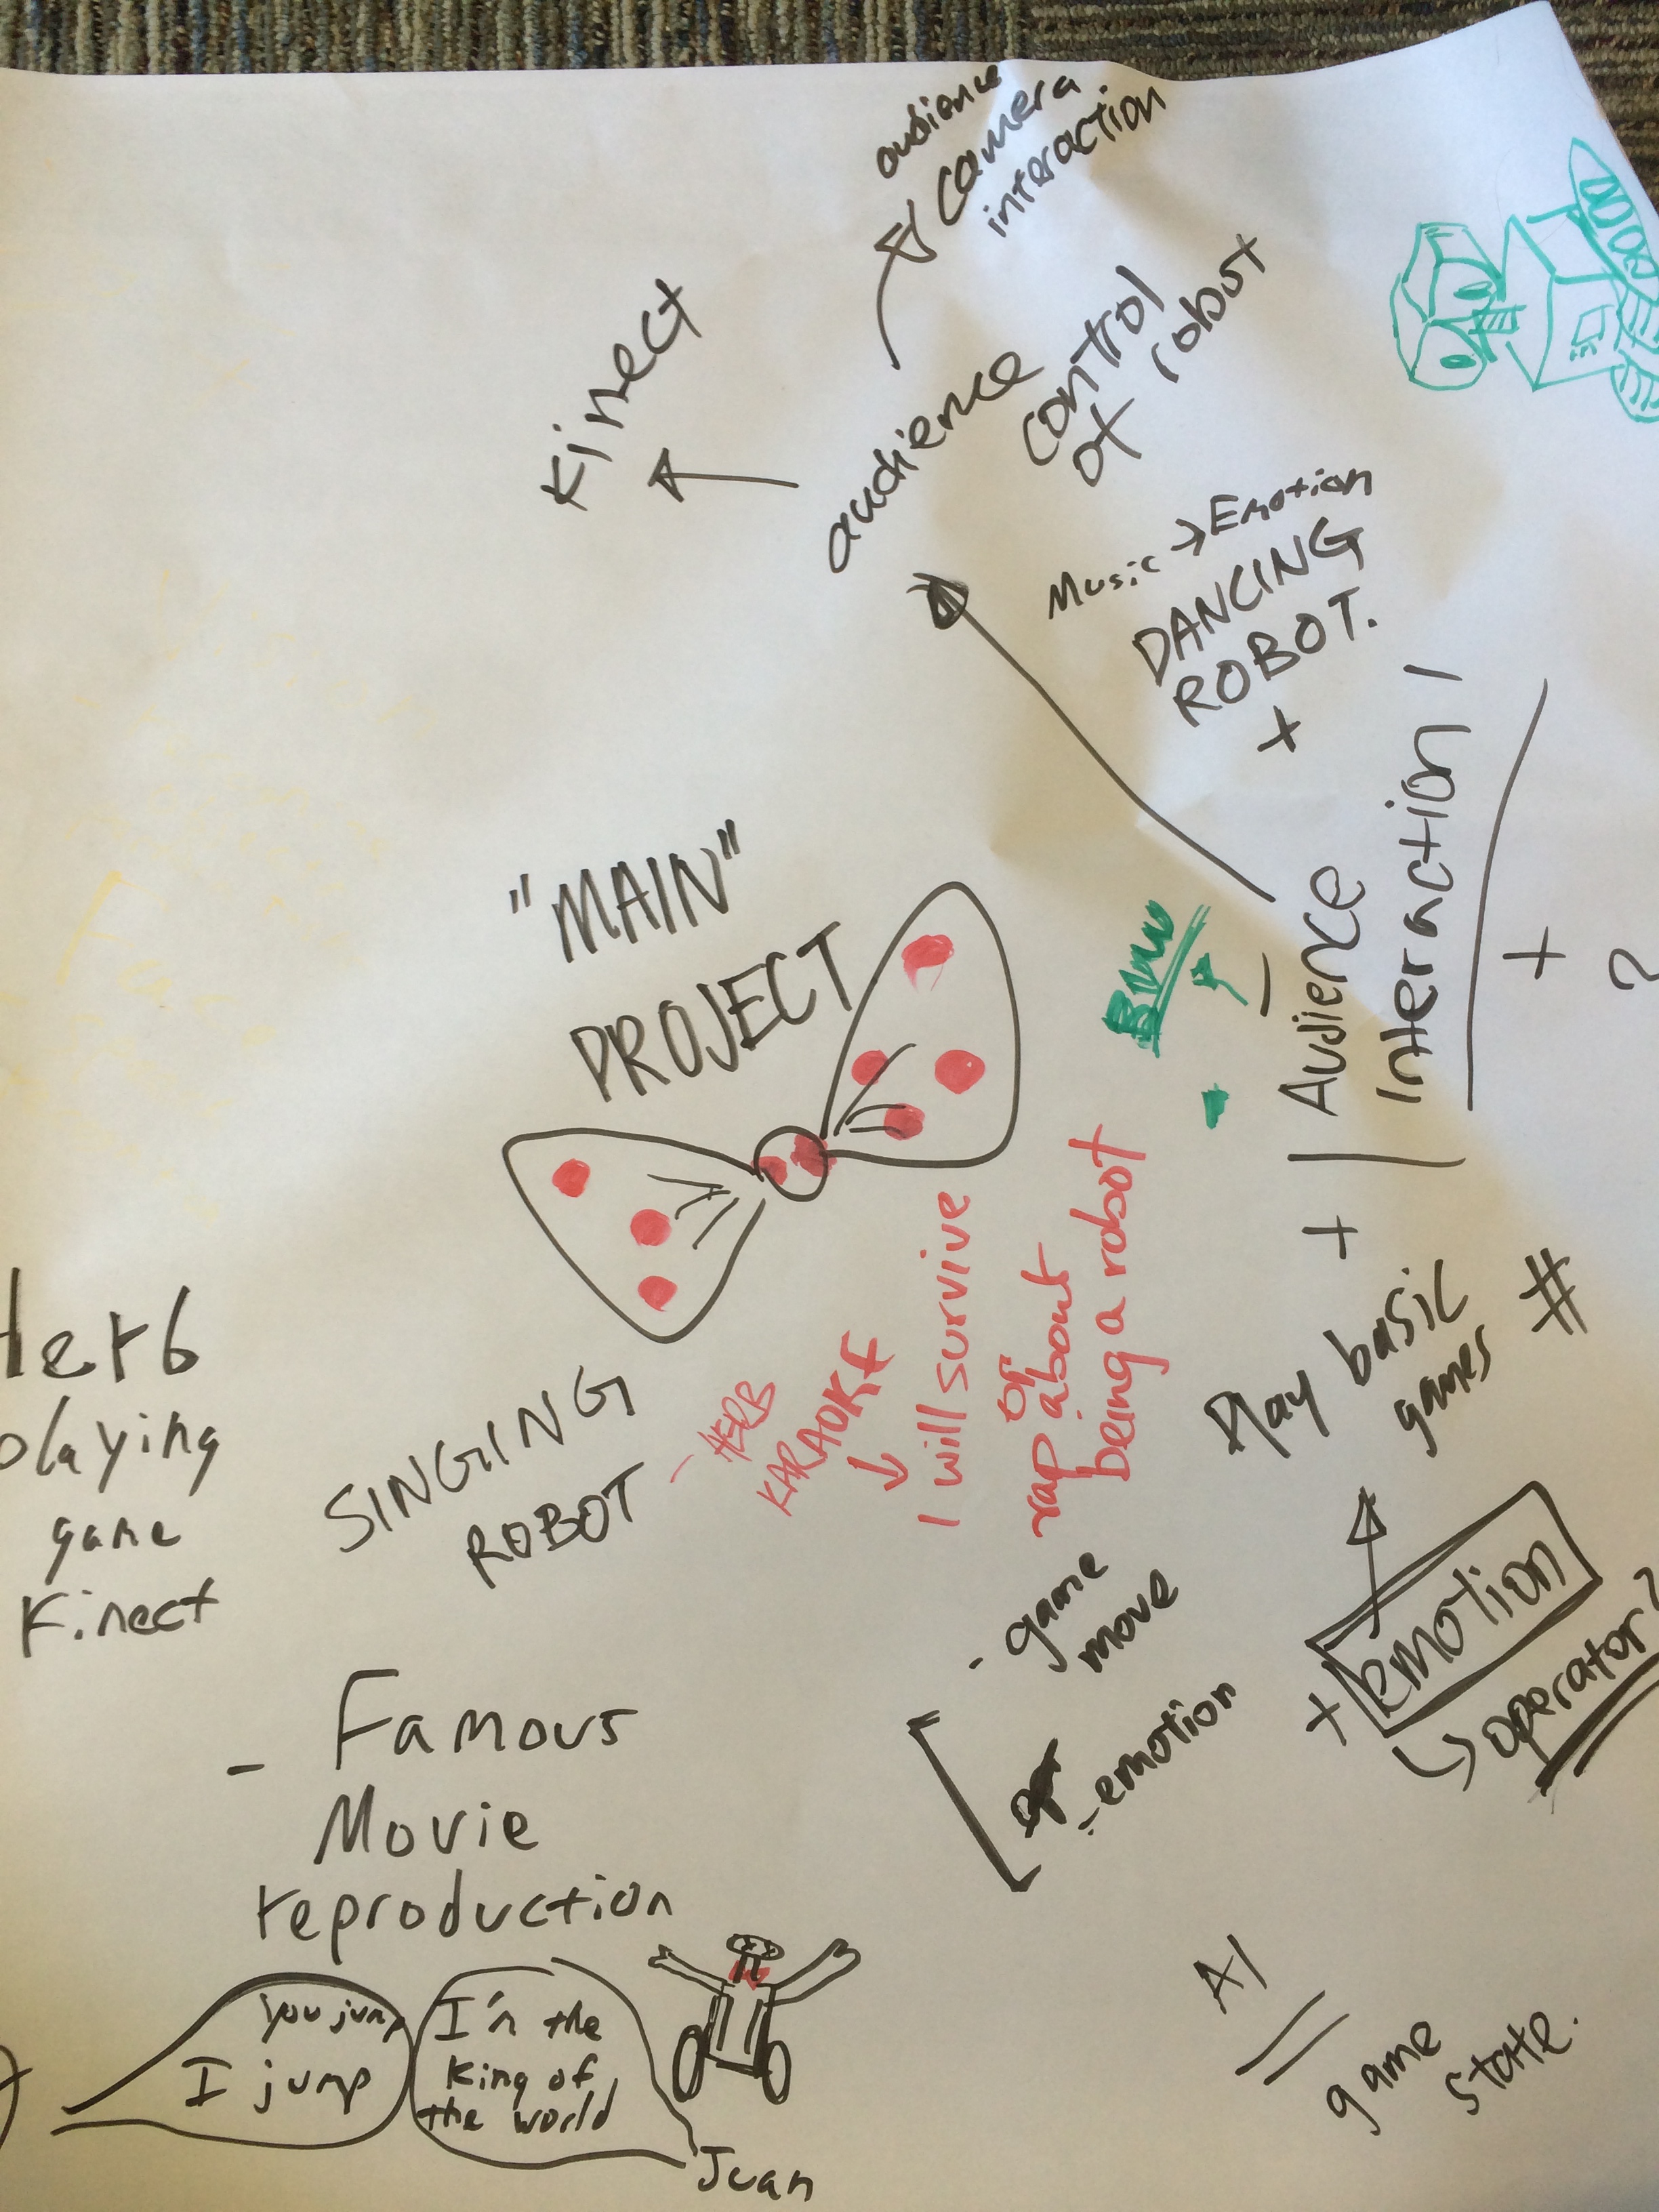 audience
camera
interaction
Kinect
audience
control
of robot
Music → Emotion
DANCING
ROBOT.
+
Audience
Interaction
+
?
"MAIN"
PROJECT
+
Play basic
games #
I will survive
or
rap about
being a robot
- HERB
KARAOKE
SINGING
ROBOT
Herb
playing
game
Kinect
- game
move
- emotion
+ emotion
operator?
- Famous
Movie
reproduction
you jump
I jump
I'm the
King of
the world
Juan
AI
game
state.